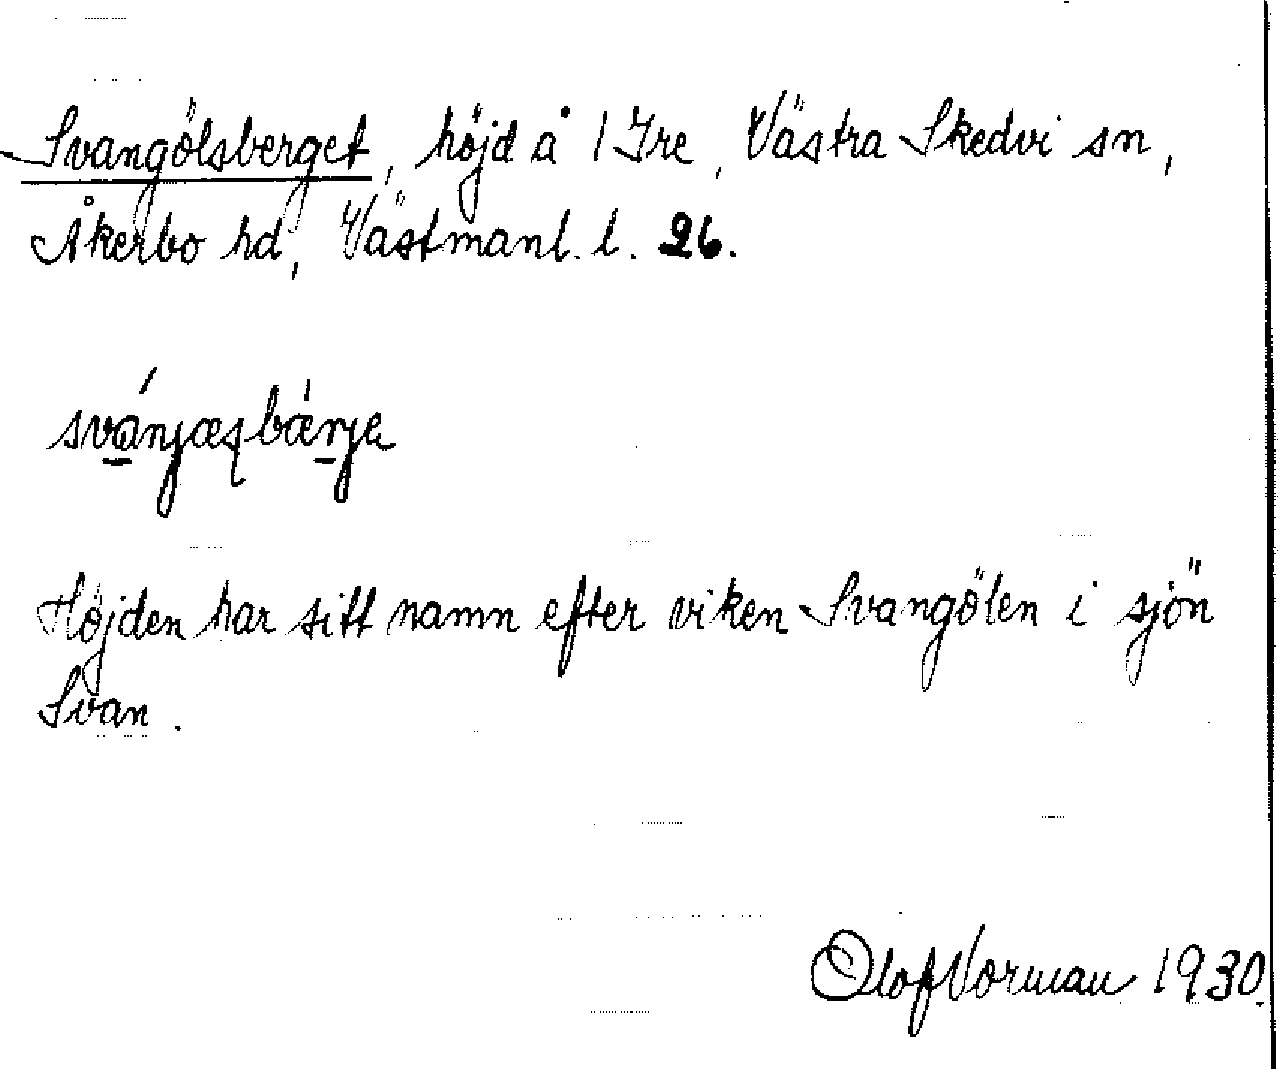 Svangölsberget, höjd å 1 Ire, Västra Skedvi sn,
Åkerbo hd, Västmanl. l. 26.
Höjden har sitt namn efter viken Svangölen i sjön
Svan.
Olof Vorman 1930.